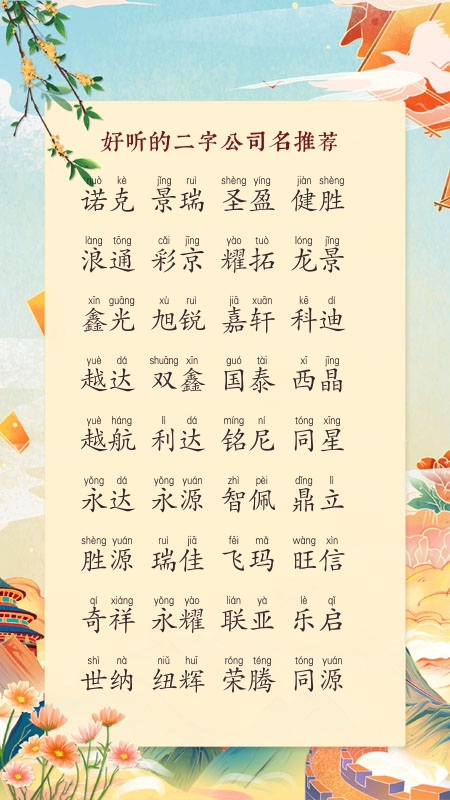 好听的二字公司名推荐
nuò kè jǐng ruì shèng yíng jiàn shèng
诺克 景瑞 圣盈 健胜
làng tōng cǎi jīng yào tuò lóng jǐng
浪通 彩京 耀拓 龙景
xīn guāng xù ruì jiā xuān kē dí
鑫光 旭锐 嘉轩 科迪
yuè dá shuāng xīn guó tài xī jīng
越达 双鑫 国泰 西晶
yuè háng lì dá míng ní tóng xīng
越航 利达 铭尼 同星
yǒng dá yǒng yuán zhì pèi dǐng lì
永达 永源 智佩 鼎立
shèng yuán ruì jiā fēi mǎ wàng xìn
胜源 瑞佳 飞玛 旺信
qí xiáng yǒng yào lián yà lè qǐ
奇祥 永耀 联亚 乐启
shì nà niǔ huī róng téng tóng yuán
世纳 纽辉 荣腾 同源